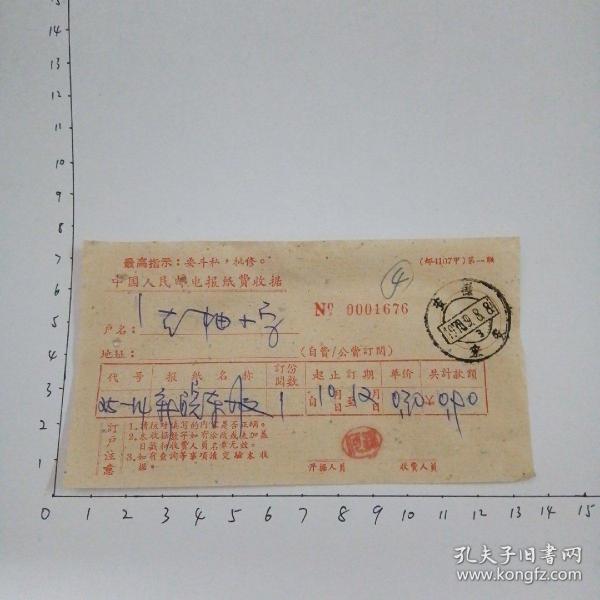 最高指示：要斗私，批修。
(邮4107甲)第一联
中国人民邮电报纸费收据
④
No 0001676
户名：
地址：
(自费/公费订阅)
1970.9.8.8
代号 报纸名称 订阅份数 起止订期 单价 共计款额
1 自10月至12月 0.30 0.90
订户注意
1.请核对填写的内容是否正确。
2.本收据数字如有涂改或未加盖
日戳和收费人员名章无效。
3.如有查询等事项请交验本收
据。
开据人员 收费人员
15
14
13
12
11
10
9
8
7
6
5
4
3
2
1
0 1 2 3 4 5 6 7 8 9 10 11 12 13 14 15
孔夫子旧书网
www.kongfz.com